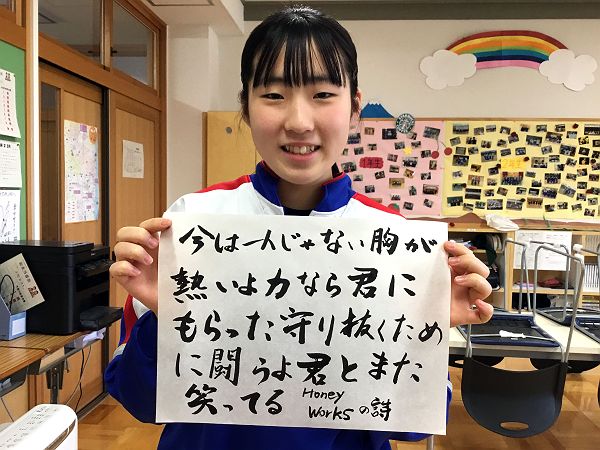 今は一人じゃない胸が
熱いよ力なら君に
もらった守り抜くため
に闘うよ君とまた
笑ってる Honey
Worksの詩